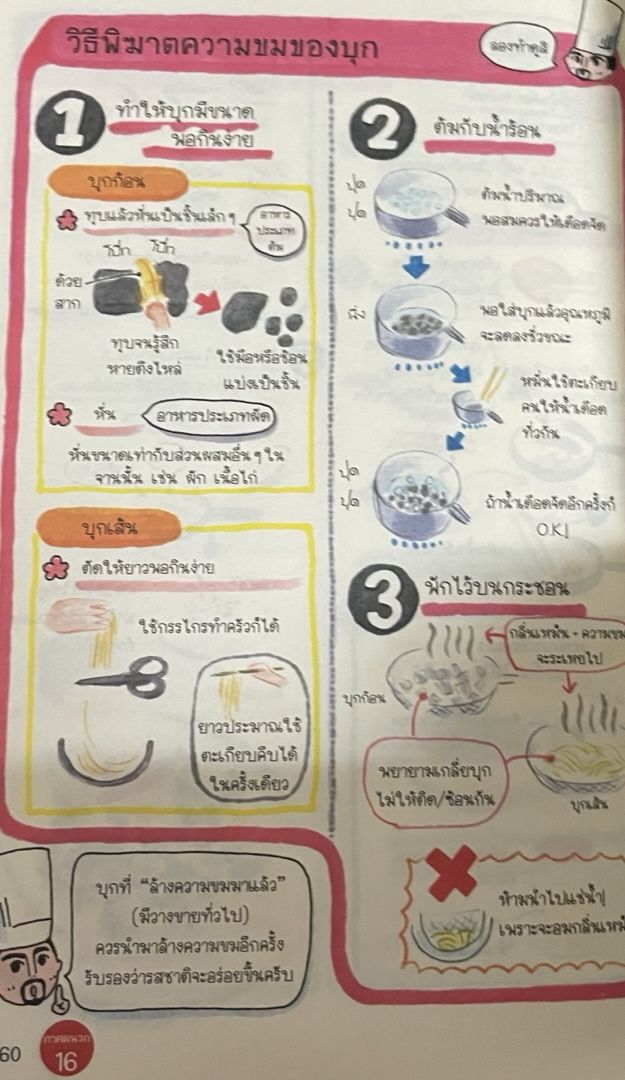 วิธีพิฆาตความขมของบุก
ลองทำดูสิ
1
ทำให้บุกมีขนาด
พอกินง่าย
บุกก้อน
ทุบแล้วหั่นเป็นชิ้นเล็กๆ
อาหาร
ประเภท
ต้ม
โป๊ก โป๊ก
ด้วย
สาก
ทุบจนรู้สึก
หายตึงไหล่
ใช้มือหรือช้อน
แบ่งเป็นชิ้น
หั่น
อาหารประเภทผัด
หั่นขนาดเท่ากับส่วนผสมอื่นๆ ใน
จานนั้น เช่น ผัก เนื้อไก่
บุกเส้น
ตัดให้ยาวพอกินง่าย
ใช้กรรไกรทำครัวก็ได้
ยาวประมาณใช้
ตะเกียบคีบได้
ในครั้งเดียว
2
ต้มกับน้ำร้อน
ปุด
ปุด
ต้มน้ำปริมาณ
พอสมควรให้เดือดจัด
นิ่ง
พอใส่บุกแล้วอุณหภูมิ
จะลดลงชั่วขณะ
หมั่นใช้ตะเกียบ
คนให้น้ำเดือด
ทั่วกัน
ปุด
ปุด
ถ้าน้ำเดือดจัดอีกครั้งก็
O.K!
3
พักไว้บนกระชอน
กลิ่นเหม็น + ความขม
จะระเหยไป
บุกก้อน
พยายามเกลี่ยบุก
ไม่ให้ติด/ซ้อนกัน
บุกเส้น
ห้ามนำไปแช่น้ำ!
เพราะจะอมกลิ่น
บุกที่ “ล้างความขมมาแล้ว”
(มีวางขายทั่วไป)
ควรนำมาล้างความขมอีกครั้ง
รับรองว่ารสชาติจะอร่อยขึ้นครับ
60
ภาคผนวก
16